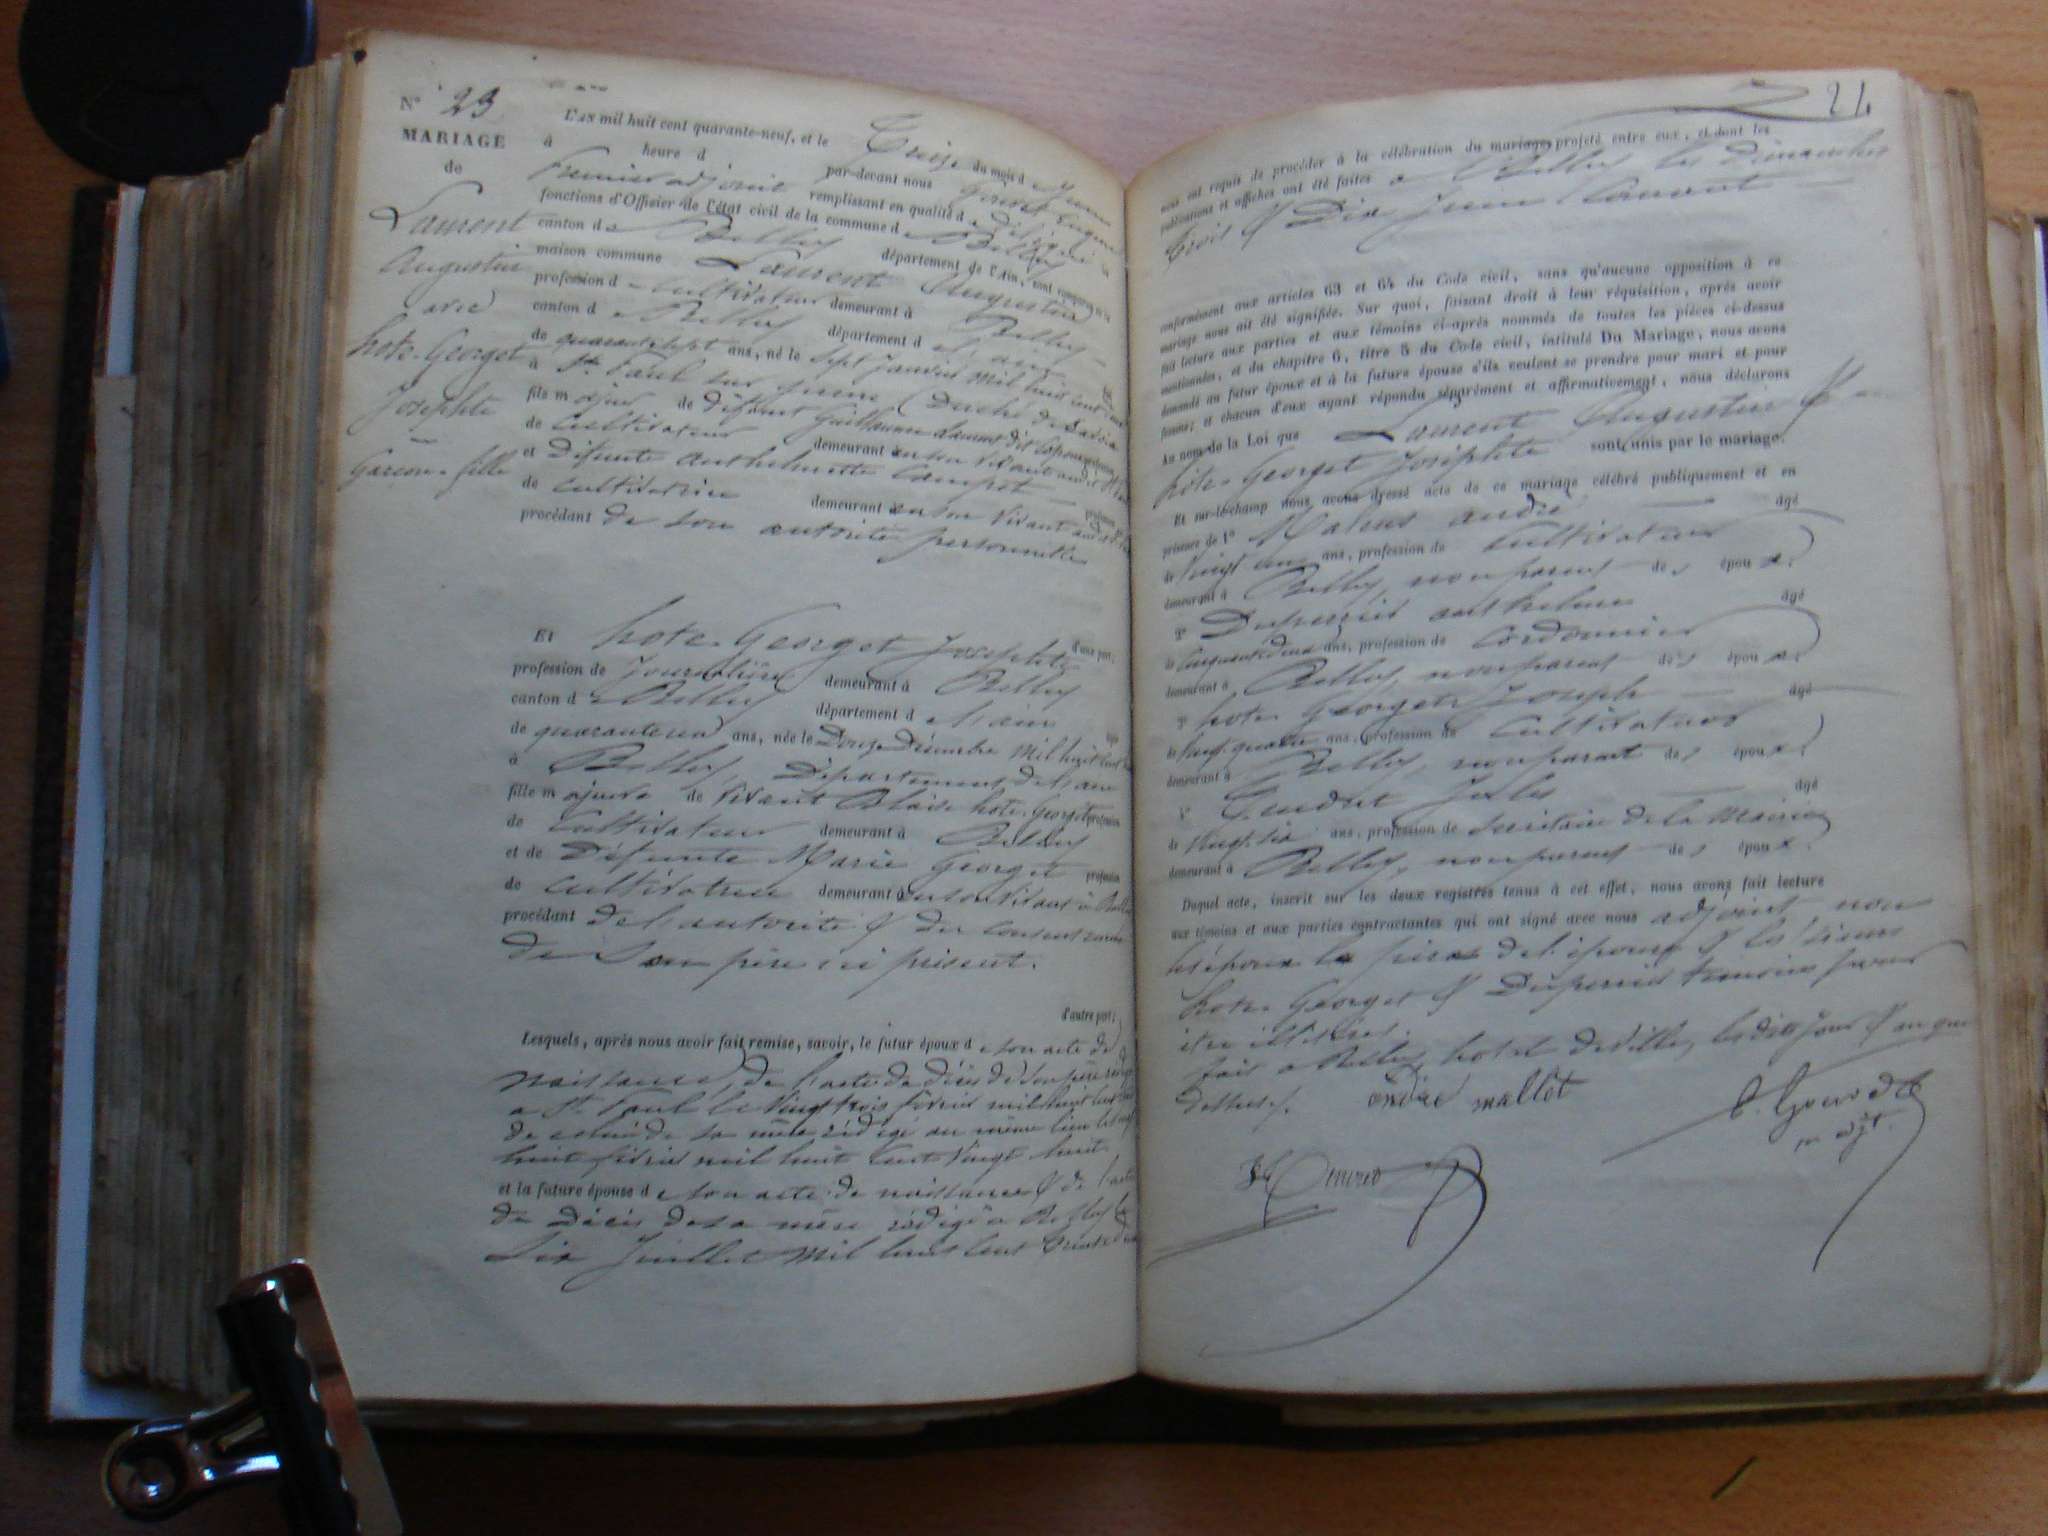 N° 23
MARIAGE
de
Laurent
Augustin
avec
hote-Georget
Josephte
Garcon & fille
L'AN mil huit cent quarante-neuf, et le Treize du mois de Juin
à heure d par-devant nous Eugène
Premier adjoint remplissant en qualité de Délégué les
fonctions d'Officier de l'état civil de la commune de Belley
canton de Belley département de l'Ain, sont comparus en la
maison commune Laurent Augustin
profession de cultivateur demeurant à Belley
canton de Belley département de l'ain
de quarante sept ans, né le Sept Janvier mil huit cent
à St. Paul sur yenne (Duché de Savoie
fils majeur de défunt Guillaume Laurent dit
de Cultivateur demeurant en son vivant audit St Paul
et défunte anthelmette
de cultivatrice demeurant en son vivant audit St
procédant de son autorité personnelle
d'une part;
Et hote-Georget Josephte
profession de Journalière demeurant à Belley
canton de Belley département de l'ain
de quarante ans, née le Douze Décembre mil huit cent
à Belley, Département de l'ain
fille majeure de vivant Blaise hote-Georget profession
de Cultivateur demeurant à Belley
et de Défunte Marie Georget profession
de cultivatrice demeurant en son vivant à Belley
procédant de l'autorité & du consentement
de Son père ici présent.
d'autre part;
Lesquels, après nous avoir fait remise, savoir, le futur époux de son acte de
naissance, de l'acte de décès de son père rédigé
a St. Paul le vingt trois février mil huit cent
de celui de sa mère rédigé au même lieu le
huit février mil huit cent vingt huit.
et la future épouse de son acte de naissance & de l'acte
de décès de sa mère rédigé a Belley le
Six Juillet mil huit cent trente deux
24
nous ont requis de procéder à la célébration du mariage projeté entre eux, et dont les
publications et affiches ont été faites a Belley les dimanches
trois & Dix Juin Courant
conformément aux articles 63 et 64 du Code civil, sans qu'aucune opposition à ce
mariage nous ait été signifiée. Sur quoi, faisant droit à leur réquisition, après avoir
fait lecture aux parties et aux témoins ci-après nommés de toutes les pièces ci-dessus
mentionnées, et du chapitre 6, titre 5 du Code civil, intitulé Du Mariage, nous avons
demandé au futur époux et à la future épouse s'ils veulent se prendre pour mari et pour
femme; et chacun d'eux ayant répondu séparément et affirmativement, nous déclarons
au nom de la Loi que Laurent Augustin &
hote-Georget Josephte sont unis par le mariage.
Et sur-le-champ nous avons dressé acte de ce mariage célébré publiquement et en
présence de 1° andré âgé
de vingt ans, profession de cultivateur
demeurant à Belley, non parent des époux.
2° Duperrier anthelme âgé
de cinquante deux ans, profession de Cordonnier
demeurant à Belley, non parent des époux.
3° hote-Georget Joseph âgé
de vingt quatre ans, profession de Cultivateur
demeurant à Belley, non parent des époux.
4° Jules âgé
de vingt six ans, profession de secrétaire de la Mairie
demeurant à Belley, non parent des époux.
Duquel acte, inscrit sur les deux registres tenus à cet effet, nous avons fait lecture
aux témoins et aux parties contractantes qui ont signé avec nous adjoint, non
les époux le père de l'épouse & les sieurs
hote-Georget & Duperrier témoins pour
être illitérés.
fait a Belley hotel de ville, les dits jour & an que
dessus.
andré mallet